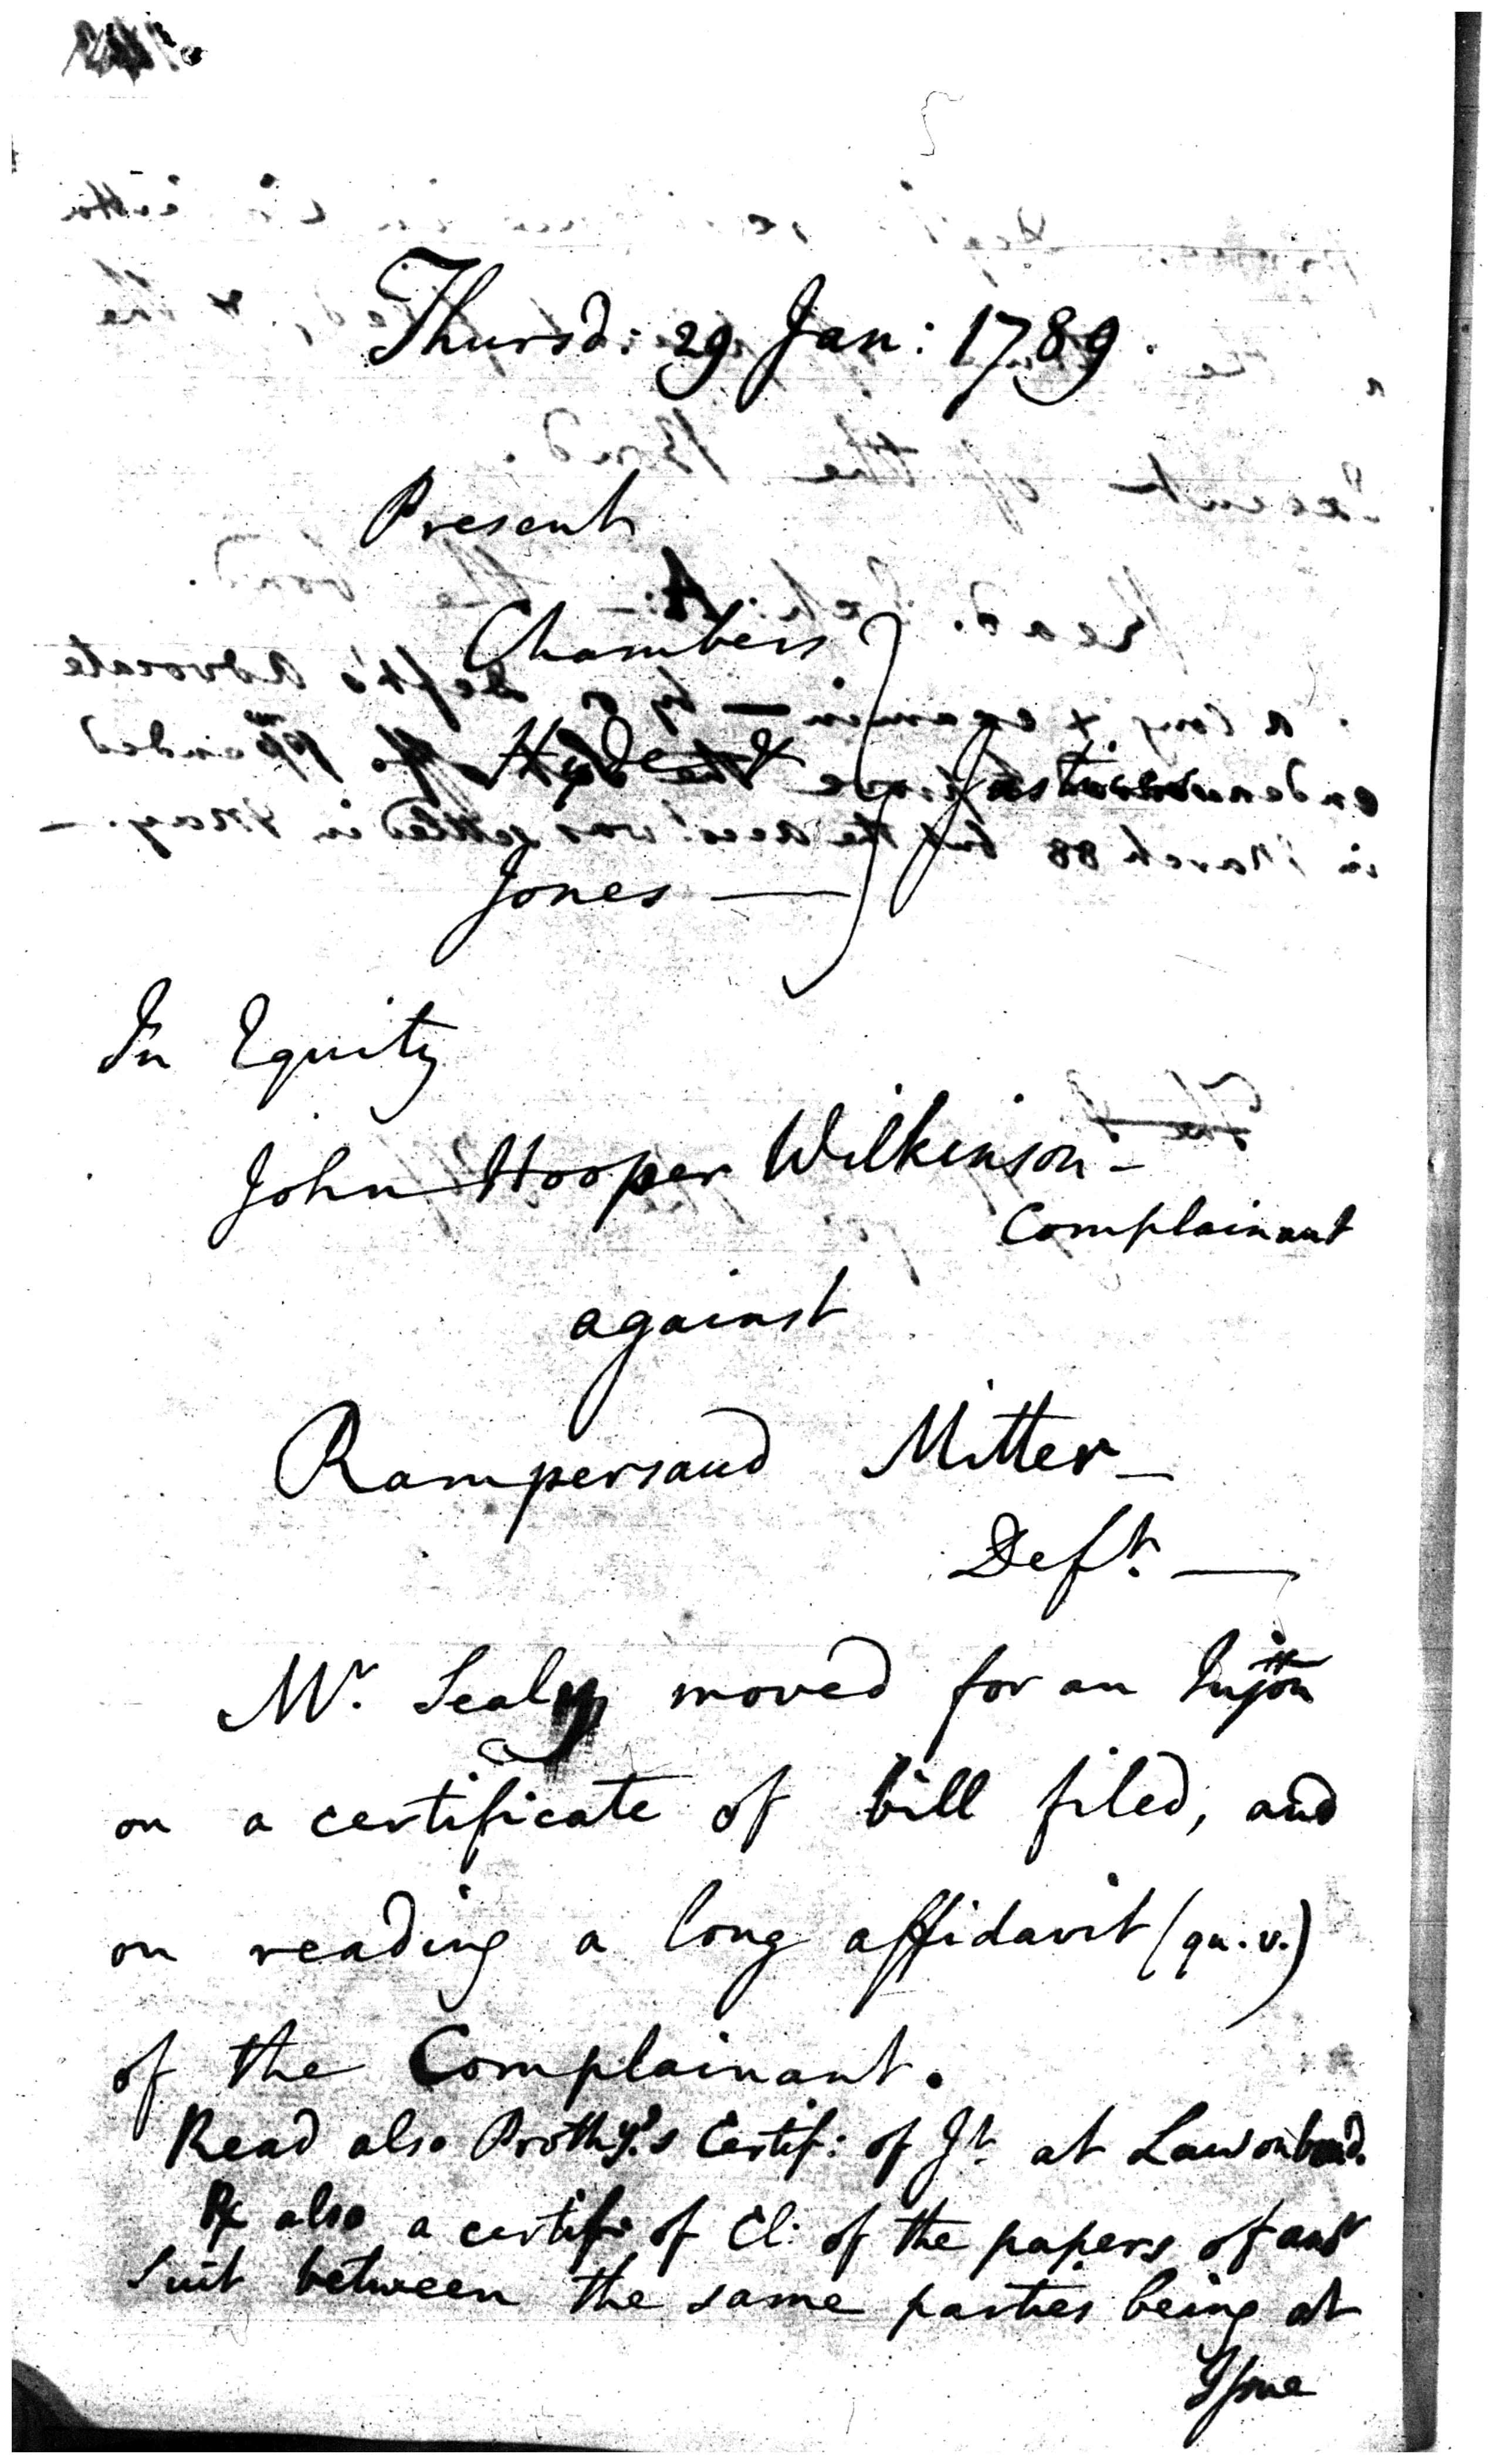 Thursd: 29 Jan: 1789.
Present
Chambers
Hyde &
Justices
Jones —
In Equity
John Hooper Wilkinson —
Complainant
against
Rampersaud Mitter —
Deft. —
Mr. Sealy moved for an Injōn
on a certificate of bill filed, and
on reading a long affidavit (qu. v.)
of the Complainant.
Read also Prothy's Certif: of Jt. at Law on bond.
also a certif: of Cl: of the papers of anr
Suit between the same parties being at
Issue